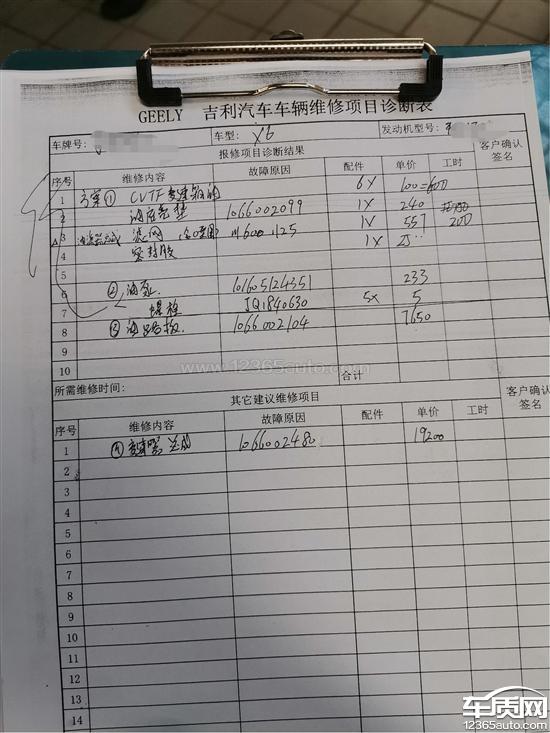 GEELY 吉利汽车车辆维修项目诊断表
车牌号: 车型: X6 发动机型号:
报修项目诊断结果 客户确认签名
序号 维修内容 故障原因 配件 单价 工时
1 方案① CVTF变速箱油 6X 100=600
2 油底壳垫 1066002099 1X 240
3 滤网 1X 557 200
4 密封胶 1X 25
5
6 ② 油泵 101605124351 233
7 螺栓 JQ1840630 5X 5
8 ③ 油路板 1066002104 7650
9
10 合计
www.12365auto.com
所需维修时间:
其它建议维修项目 客户确认签名
序号 维修内容 故障原因 配件 单价 工时
1 ④ 变速器总成 1066002480 19200
2
3
4
5
6
7
8
9
10
11
12
13
14
车质网
12365auto.com